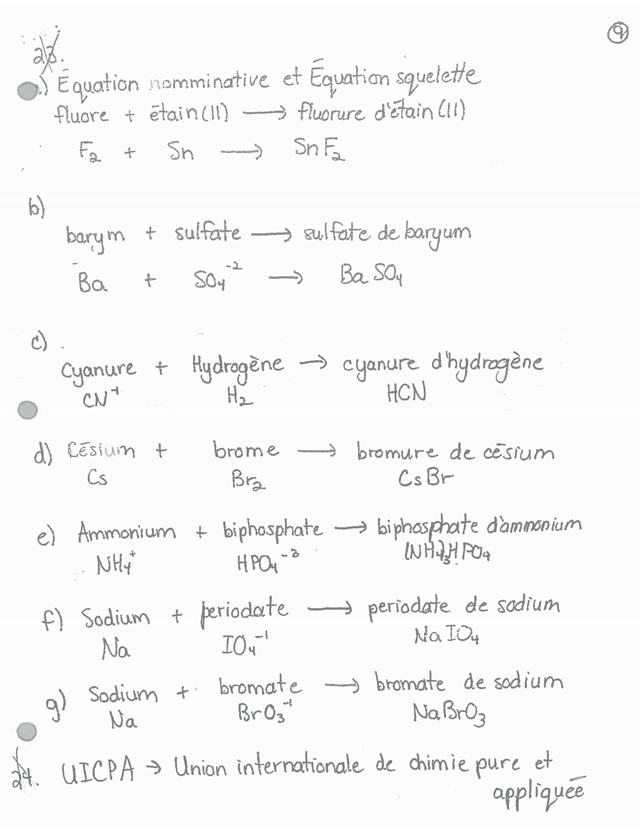 9
23.
a) Équation nomminative et Équation squelette
fluore + étain(II) → fluorure d'étain (II)
F₂ + Sn → SnF₂
b)
barym + sulfate → sulfate de baryum
Ba + SO₄⁻² → BaSO₄
c)
Cyanure + Hydrogène → cyanure d'hydrogène
CN⁻¹ H₂ HCN
d) Césium + brome → bromure de césium
Cs Br₂ CsBr
e) Ammonium + biphosphate → biphosphate d'ammonium
NH₄⁺ HPO₄⁻³ (NH₄)₃HPO₄
f) Sodium + periodate → periodate de sodium
Na IO₄⁻¹ NaIO₄
g) Sodium + bromate → bromate de sodium
Na BrO₃⁻¹ NaBrO₃
24. UICPA → Union internationale de chimie pure et
appliquée